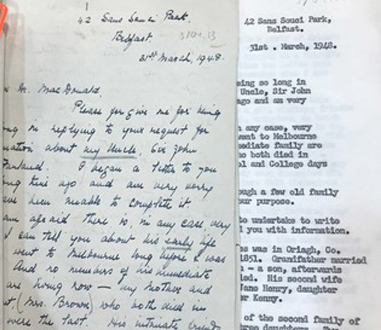 42 Sans Souci Park,
Belfast.
31st March, 1948.
Dr. MacDonald
Please forgive me for being
in replying to your request for
about my Uncle, Sir John
I began a letter to you
time ago and am very sorry
been unable to complete it
am afraid there is, in any case, very
I can tell you about his early life
went to Melbourne long before I was
And no members of his immediate
are living now – my mother and
(Mrs. Brown) who both died in
were the last. His intimate friends
42 Sans Souci Park,
Belfast.
31st. March, 1948.
being so long in
Uncle, Sir John
ago and am very
any case, very
went to Melbourne
mediate family are
ho both died in
ol and College days
ough a few old family
our purpose.
to undertake to write
d you with information.
was in Oriagh, Co.
1851. Grandfather married
- a son, afterwards
ied. His second wife
Jane Henry, daughter
er Kenny.
of the second family of